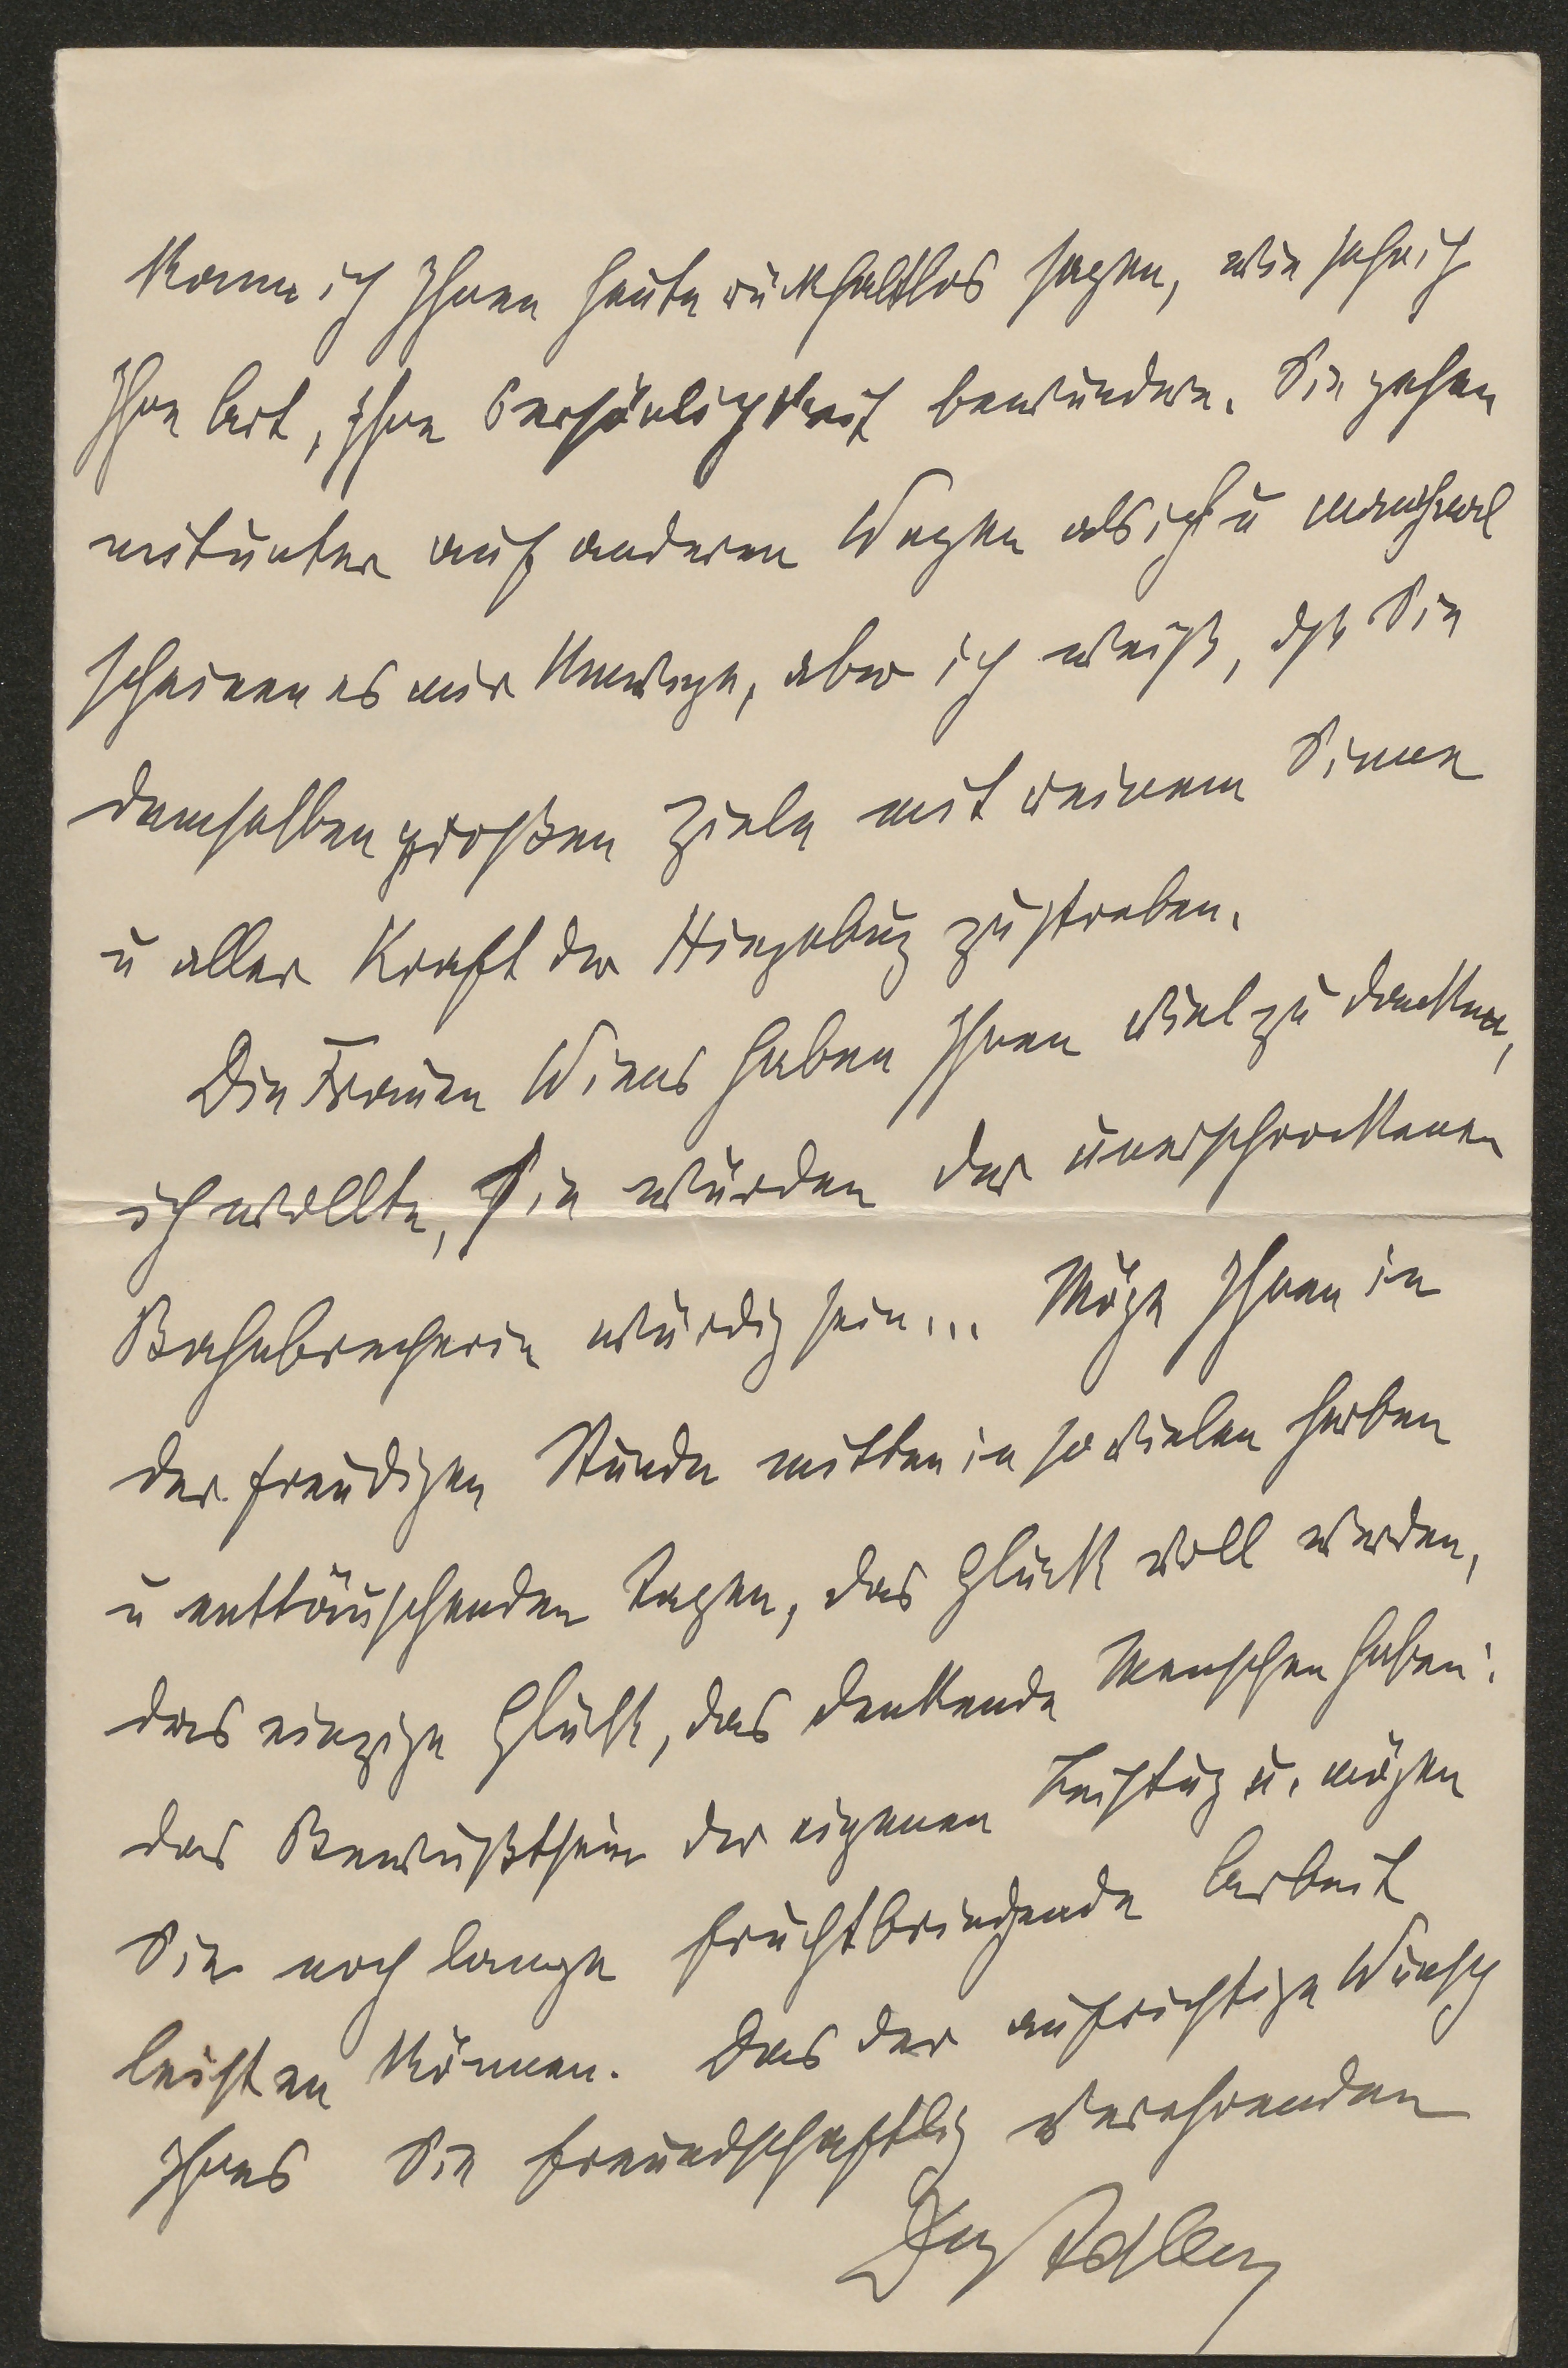 kann ich Ihnen heute rückhaltlos sagen, wie sehr ich
Ihre Art, Ihre Persönlichkeit bewundere. Sie gehen
mitunter auf anderen Wegen als ich u manchmal
scheinen es mir Umwege, aber ich weiß, dß Sie
demselben großen Ziele mit reinem Sinne
u aller Kraft der Hingebug zustreben.
Die Frauen Wiens haben Ihnen viel zu danken,
ich wollte, Sie würden der unerschrockenen
Bahnbrecherin würdig sein... Möge Ihnen in
der freudigen Stunde mitten in so vielen herben
u enttäuschenden Tagen, das Glück voll werden,
das einzige Glück, das denkende Menschen haben:
das Bewußtsein der eigenen Leistug u. mögen
Sie noch lange fruchtbringende Arbeit
leisten können. Das der aufrichtige Wunsch
Ihres Sie freundschaftlich verehrenden
Adler